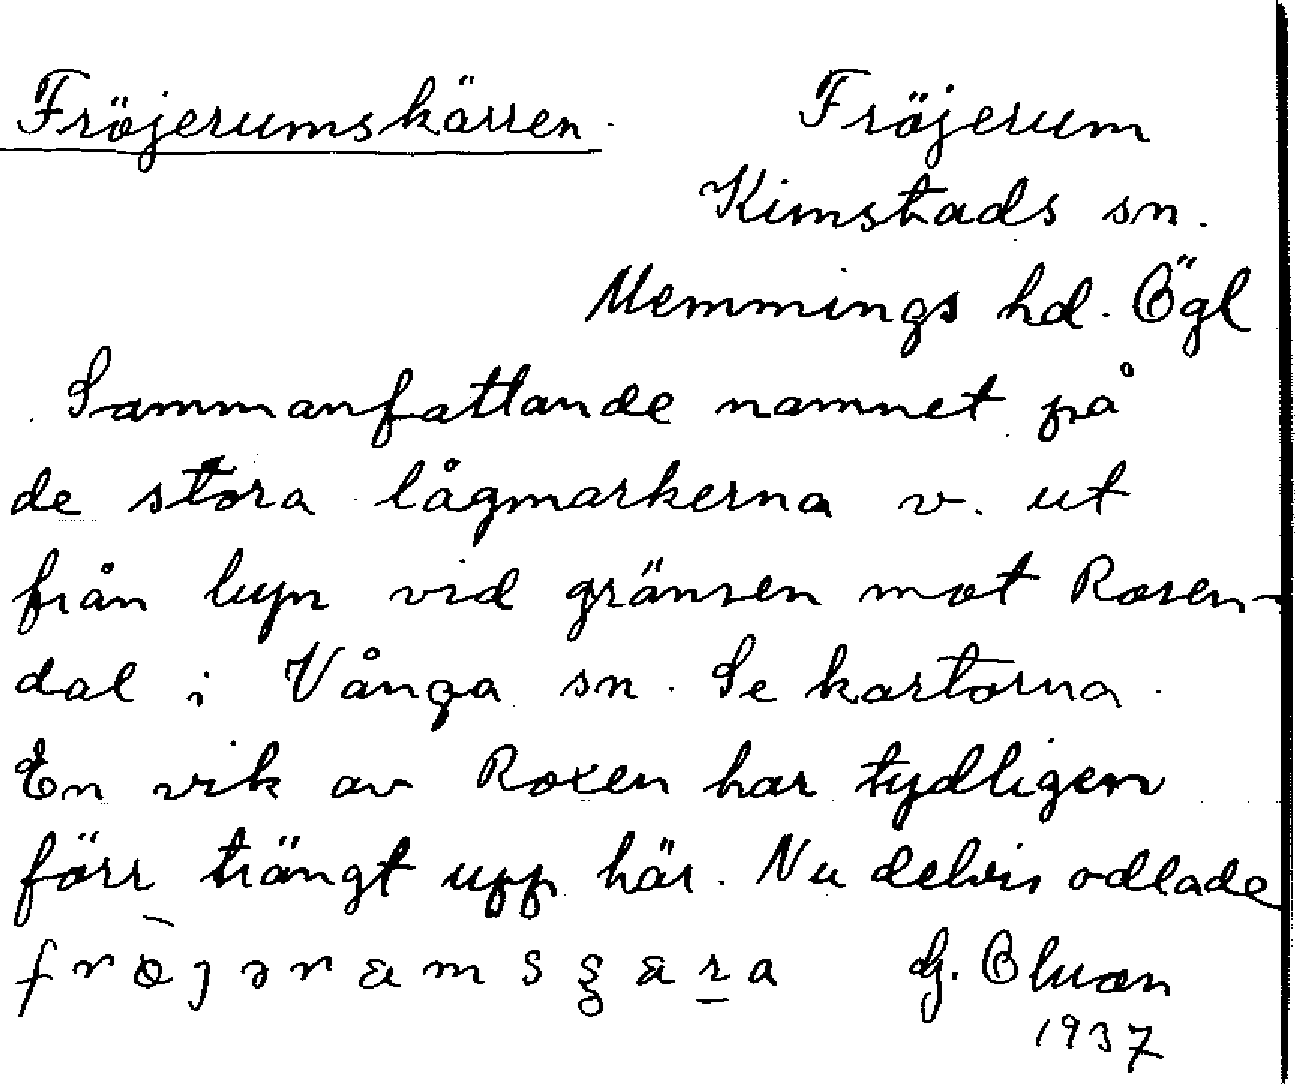 Fröjerumskärren. Fröjerum
Kimstads sn.
Memmings hd. Ögl
Sammanfattande namnet på
de stora lågmarkerna v. ut
från byn vid gränsen mot Rosen-
dal i Vånga sn. Se kartorna.
En vik av Roxen har tydligen
förr trängt upp här. Nu delvis odlade
G.
1937